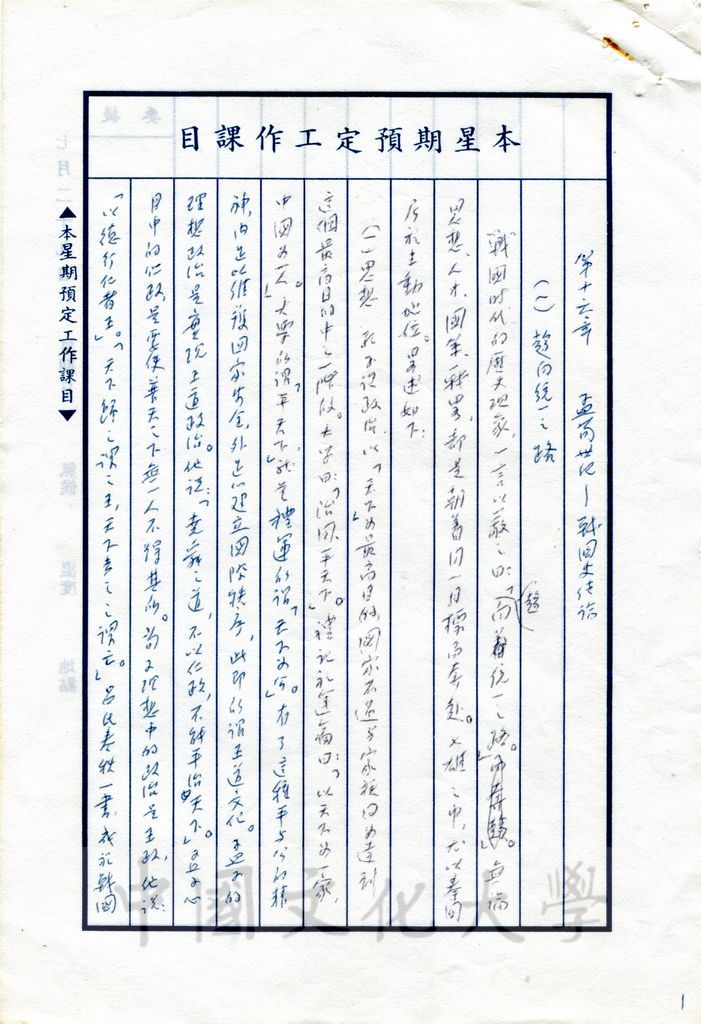 本星期預定工作課目
第十六章 孟荀世紀—戰國史結論
(一) 趨向統一之路
戰國時代的歷史現象，一言以蔽之曰：「向着統一之路。」無論
趨
思想、人才、國策、戰略，都是朝着同一目標而奔赴。七雄之中，尤以秦國
居於主動地位。略述如下：
(一) 思想 我國政治，以「天下」為最高目的，國家不過與家族同為達到
這個最高目的中之一階段。大學曰：「治國平天下。」禮記禮運篇曰：「以天下為一家，
中國為一人。」大學所謂「平天下」，就是禮運所謂「天下為公」。有了這種平與公的精
神，內足以維護國家安全，外足以建立國際秩序，此即所謂王道文化。孟子的
理想政治是實現王道政治。他說：「堯舜之道，不以仁政，不能平治天下。」孟子心
目中的仁政是要使普天之下無一人不得其所。荀子理想中的政治是王政，他說：
「以德行仁者王。」「天下歸之謂之王，天下去之之謂亡。」呂氏春秋一書，成於戰國
▲本星期預定工作課目▼
氣候 溫度 地點
七月二
中國文化大學
1